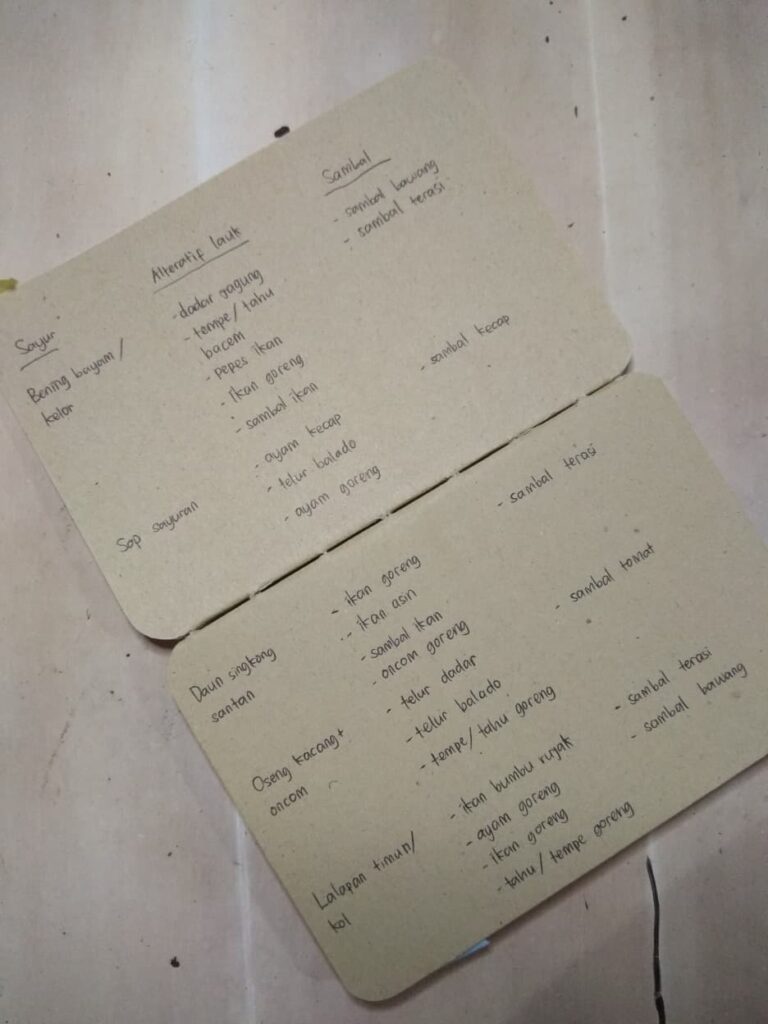 Sayur
Alteratif lauk
Sambal
Bening bayam/
kelor
- dadar jagung
- tempe/tahu
bacem
- pepes ikan
- ikan goreng
- sambal ikan
- sambal bawang
- sambal terasi
Sop sayuran
- ayam kecap
- telur balado
- ayam goreng
- sambal kecap
Daun singkong
santan
- ikan goreng
- ikan asin
- sambal ikan
- oncom goreng
- sambal terasi
Oseng kacang+
oncom
- telur dadar
- telur balado
- tempe/tahu goreng
- sambal tomat
Lalapan timun/
kol
- ikan bumbu rujak
- ayam goreng
- ikan goreng
- tahu/tempe goreng
- sambal terasi
- sambal bawang